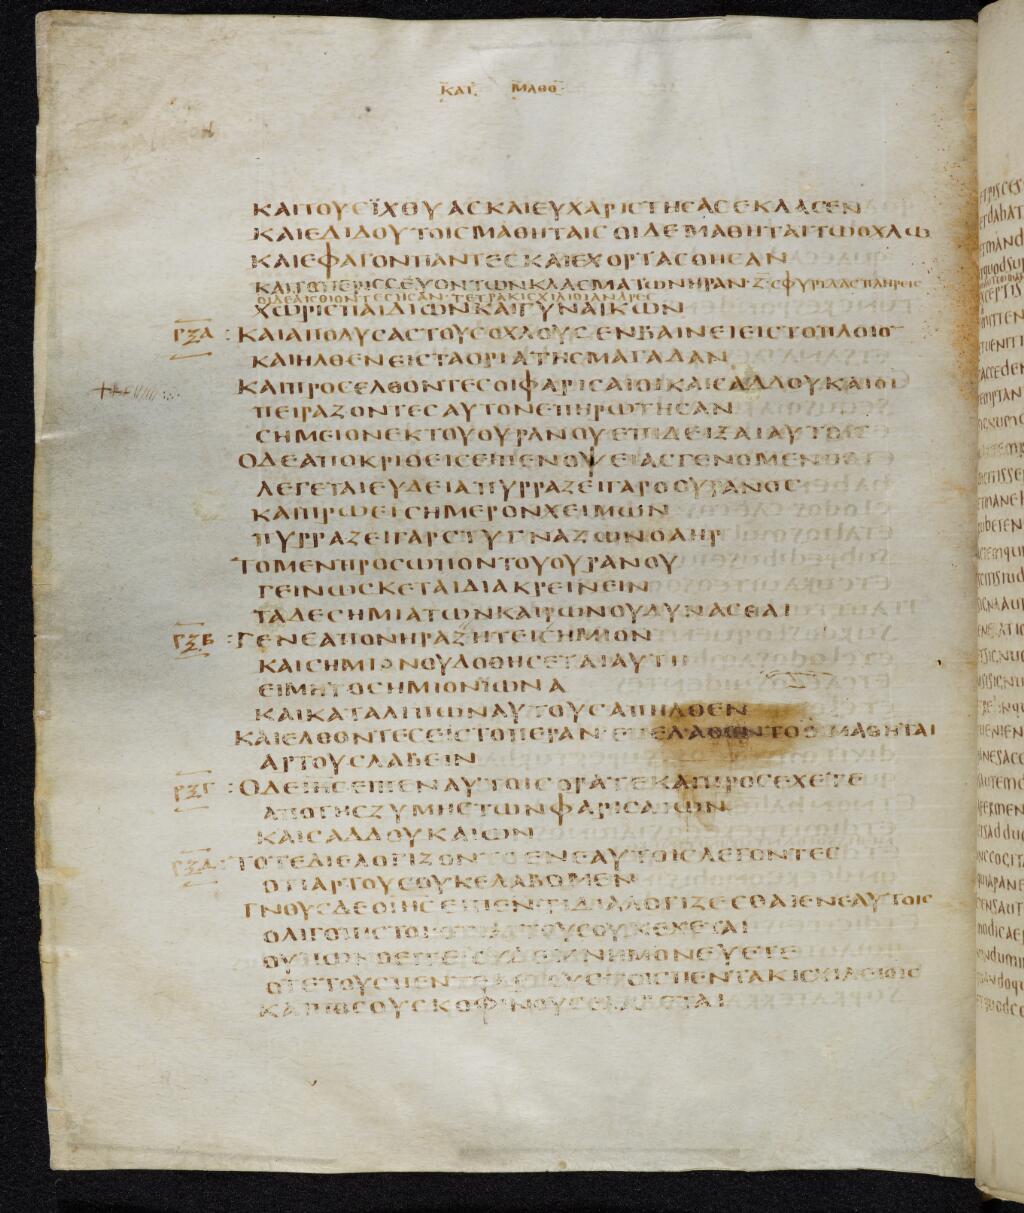 ΚΑΤ ΜΑΘΘ
ΚΑΙ ΤΟΥΣ ΪΧΘΥΑΣ ΚΑΙ ΕΥΧΑΡΙΣΤΗΣΑΣ ΕΚΛΑΣΕΝ
ΚΑΙ ΕΔΙΔΟΥ ΤΟΙΣ ΜΑΘΗΤΑΙΣ ΟΙ ΔΕ ΜΑΘΗΤΑΙ ΤΩ ΟΧΛΩ
ΚΑΙ ΕΦΑΓΟΝ ΠΑΝΤΕΣ ΚΑΙ ΕΧΟΡΤΑΣΘΗΣΑΝ
ΚΑΙ ΤΟ ΠΕΡΙΣΣΕΥΟΝ ΤΩΝ ΚΛΑΣΜΑΤΩΝ ΗΡΑΝ Ζ ΣΦΥΡΙΔΑΣ ΠΛΗΡΕΙΣ
ΟΙ ΔΕ ΑΙΣΘΙΟΝΤΕΣ ΗΣΑΝ ΤΕΤΡΑΚΙΣΧΙΛΙΟΙ ΑΝΔΡΕΣ
ΧΩΡΙΣ ΠΑΙΔΙΩΝ ΚΑΙ ΓΥΝΑΙΚΩΝ
ΡΞΑ : ΚΑΙ ΑΠΟΛΥΣΑΣ ΤΟΥΣ ΟΧΛΟΥΣ ΕΝΒΑΙΝΕΙ ΕΙΣ ΤΟ ΠΛΟΙΟ
ΚΑΙ ΗΛΘΕΝ ΕΙΣ ΤΑ ΟΡΙΑ ΤΗΣ ΜΑΓΑΔΑΝ
ΚΑΙ ΠΡΟΣΕΛΘΟΝΤΕΣ ΟΙ ΦΑΡΙΣΑΙΟΙ ΚΑΙ ΣΑΔΔΟΥΚΑΙΟΙ
ΠΕΙΡΑΖΟΝΤΕΣ ΑΥΤΟΝ ΕΠΗΡΩΤΗΣΑΝ
ΣΗΜΕΙΟΝ ΕΚ ΤΟΥ ΟΥΡΑΝΟΥ ΕΠΙΔΕΙΞΑΙ ΑΥΤΟΙΣ
Ο ΔΕ ΑΠΟΚΡΙΘΕΙΣ ΕΙΠΕΝ ΟΨΕΙΑΣ ΓΕΝΟΜΕΝΗΣ
ΛΕΓΕΤΑΙ ΕΥΔΕΙΑ ΠΥΡΡΑΖΕΙ ΓΑΡ Ο ΟΥΡΑΝΟΣ
ΚΑΙ ΠΡΩΕΙ ΣΗΜΕΡΟΝ ΧΕΙΜΩΝ
ΠΥΡΡΑΖΕΙ ΓΑΡ ΣΤΥΓΝΑΖΩΝ Ο ΑΗΡ
ΤΟ ΜΕΝ ΠΡΟΣΩΠΟΝ ΤΟΥ ΟΥΡΑΝΟΥ
ΓΕΙΝΩΣΚΕΤΑΙ ΔΙΑΚΡΕΙΝΕΙΝ
ΤΑ ΔΕ ΣΗΜΙΑ ΤΩΝ ΚΑΙΡΩΝ ΟΥ ΔΥΝΑΣΘΑΙ
ΡΞΒ : ΓΕΝΕΑ ΠΟΝΗΡΑ ΖΗΤΕΙ ΣΗΜΙΟΝ
ΚΑΙ ΣΗΜΙΟΝ ΟΥ ΔΟΘΗΣΕΤΑΙ ΑΥΤΗ
ΕΙ ΜΗ ΤΟ ΣΗΜΙΟΝ ΪΩΝΑ
ΚΑΙ ΚΑΤΑΛΙΠΩΝ ΑΥΤΟΥΣ ΑΠΗΛΘΕΝ
ΚΑΙ ΕΛΘΟΝΤΕΣ ΕΙΣ ΤΟ ΠΕΡΑΝ ΕΠΕΛΑΘΟΝΤΟ ΟΙ ΜΑΘΗΤΑΙ
ΑΡΤΟΥΣ ΛΑΒΕΙΝ
ΡΞΓ : Ο ΔΕ ΙΗΣ ΕΙΠΕΝ ΑΥΤΟΙΣ ΟΡΑΤΕ ΚΑΙ ΠΡΟΣΕΧΕΤΕ
ΑΠΟ ΤΗΣ ΖΥΜΗΣ ΤΩΝ ΦΑΡΙΣΑΙΩΝ
ΚΑΙ ΣΑΔΔΟΥΚΑΙΩΝ
ΡΞΔ : ΤΟΤΕ ΔΙΕΛΟΓΙΖΟΝΤΟ ΕΝ ΕΑΥΤΟΙΣ ΛΕΓΟΝΤΕΣ
ΟΤΙ ΑΡΤΟΥΣ ΟΥΚ ΕΛΑΒΟΜΕΝ
ΓΝΟΥΣ ΔΕ Ο ΙΗΣ ΕΙΠΕΝ ΤΙ ΔΙΑΛΟΓΙΖΕΣΘΑΙ ΕΝ ΕΑΥΤΟΙΣ
ΟΛΙΓΟΠΙΣΤΟΙ ΟΤΙ ΑΡΤΟΥΣ ΟΥΚ ΕΧΕΤΑΙ
ΟΥΠΩ ΝΟΕΙΤΕ ΟΥΔΕ ΜΝΗΜΟΝΕΥΕΤΕ
ΟΤΕ ΤΟΥΣ ΠΕΝΤΕ ΑΡΤΟΥΣ ΤΟΙΣ ΠΕΝΤΑΚΙΣΧΙΛΕΙΟΙΣ
ΚΑΙ ΠΟΣΟΥΣ ΚΟΦΙΝΟΥΣ ΕΛΑΒΕΤΑΙ